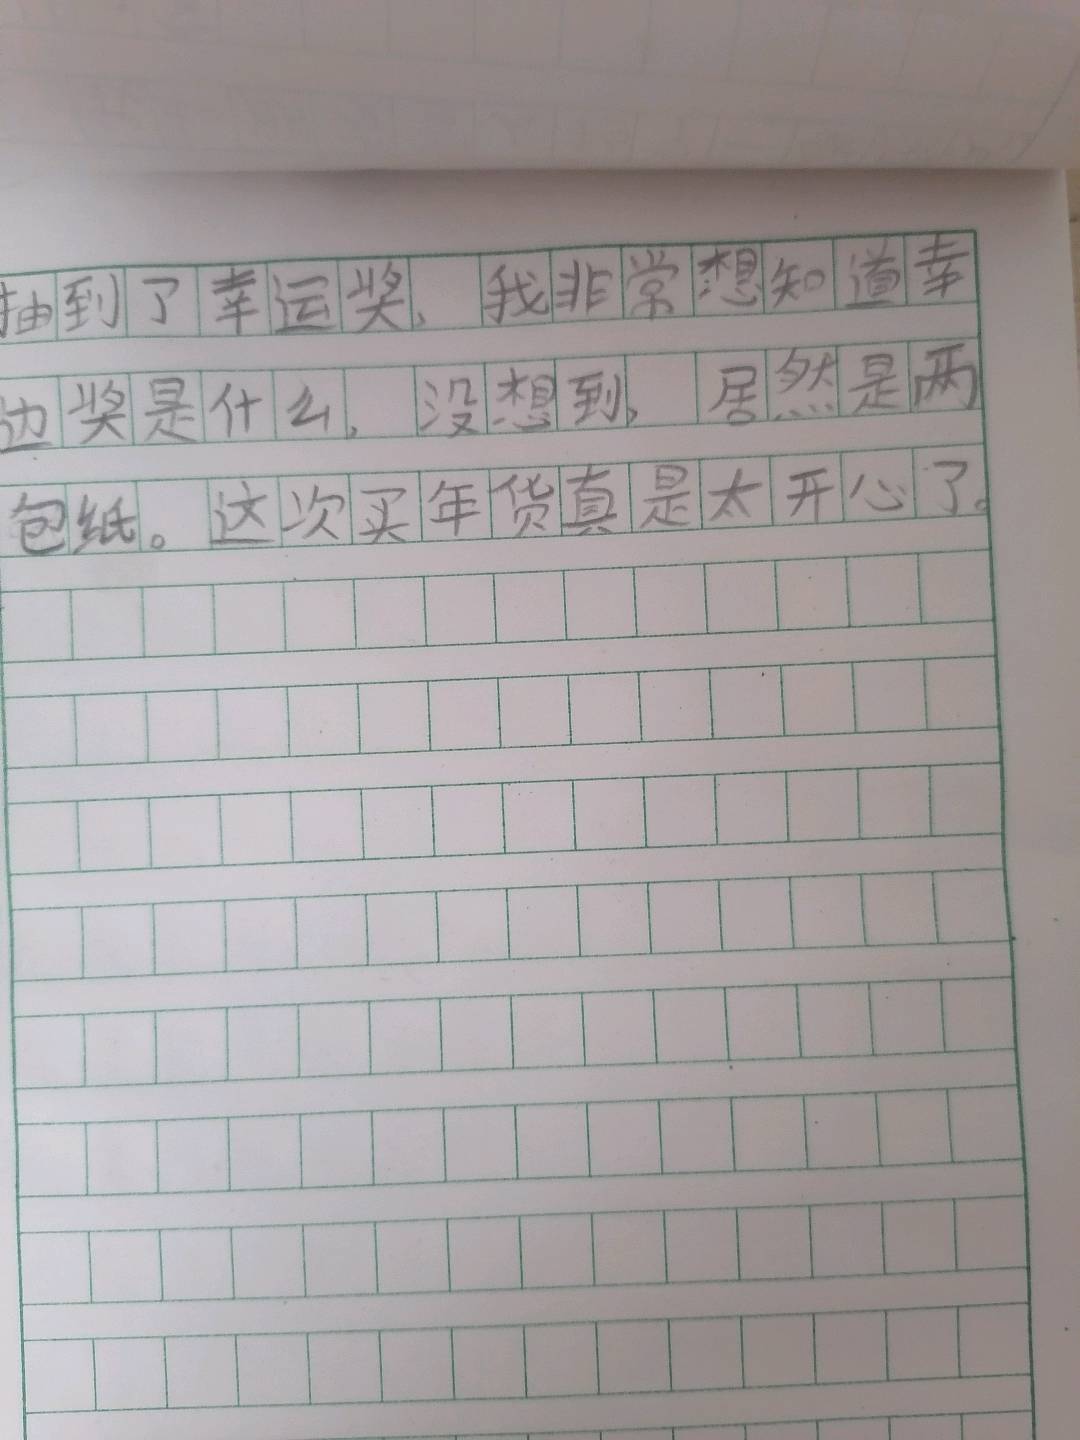 抽到了幸运奖，我非常想知道幸
边奖是什么，没想到，居然是两
包纸。这次买年货真是太开心了。